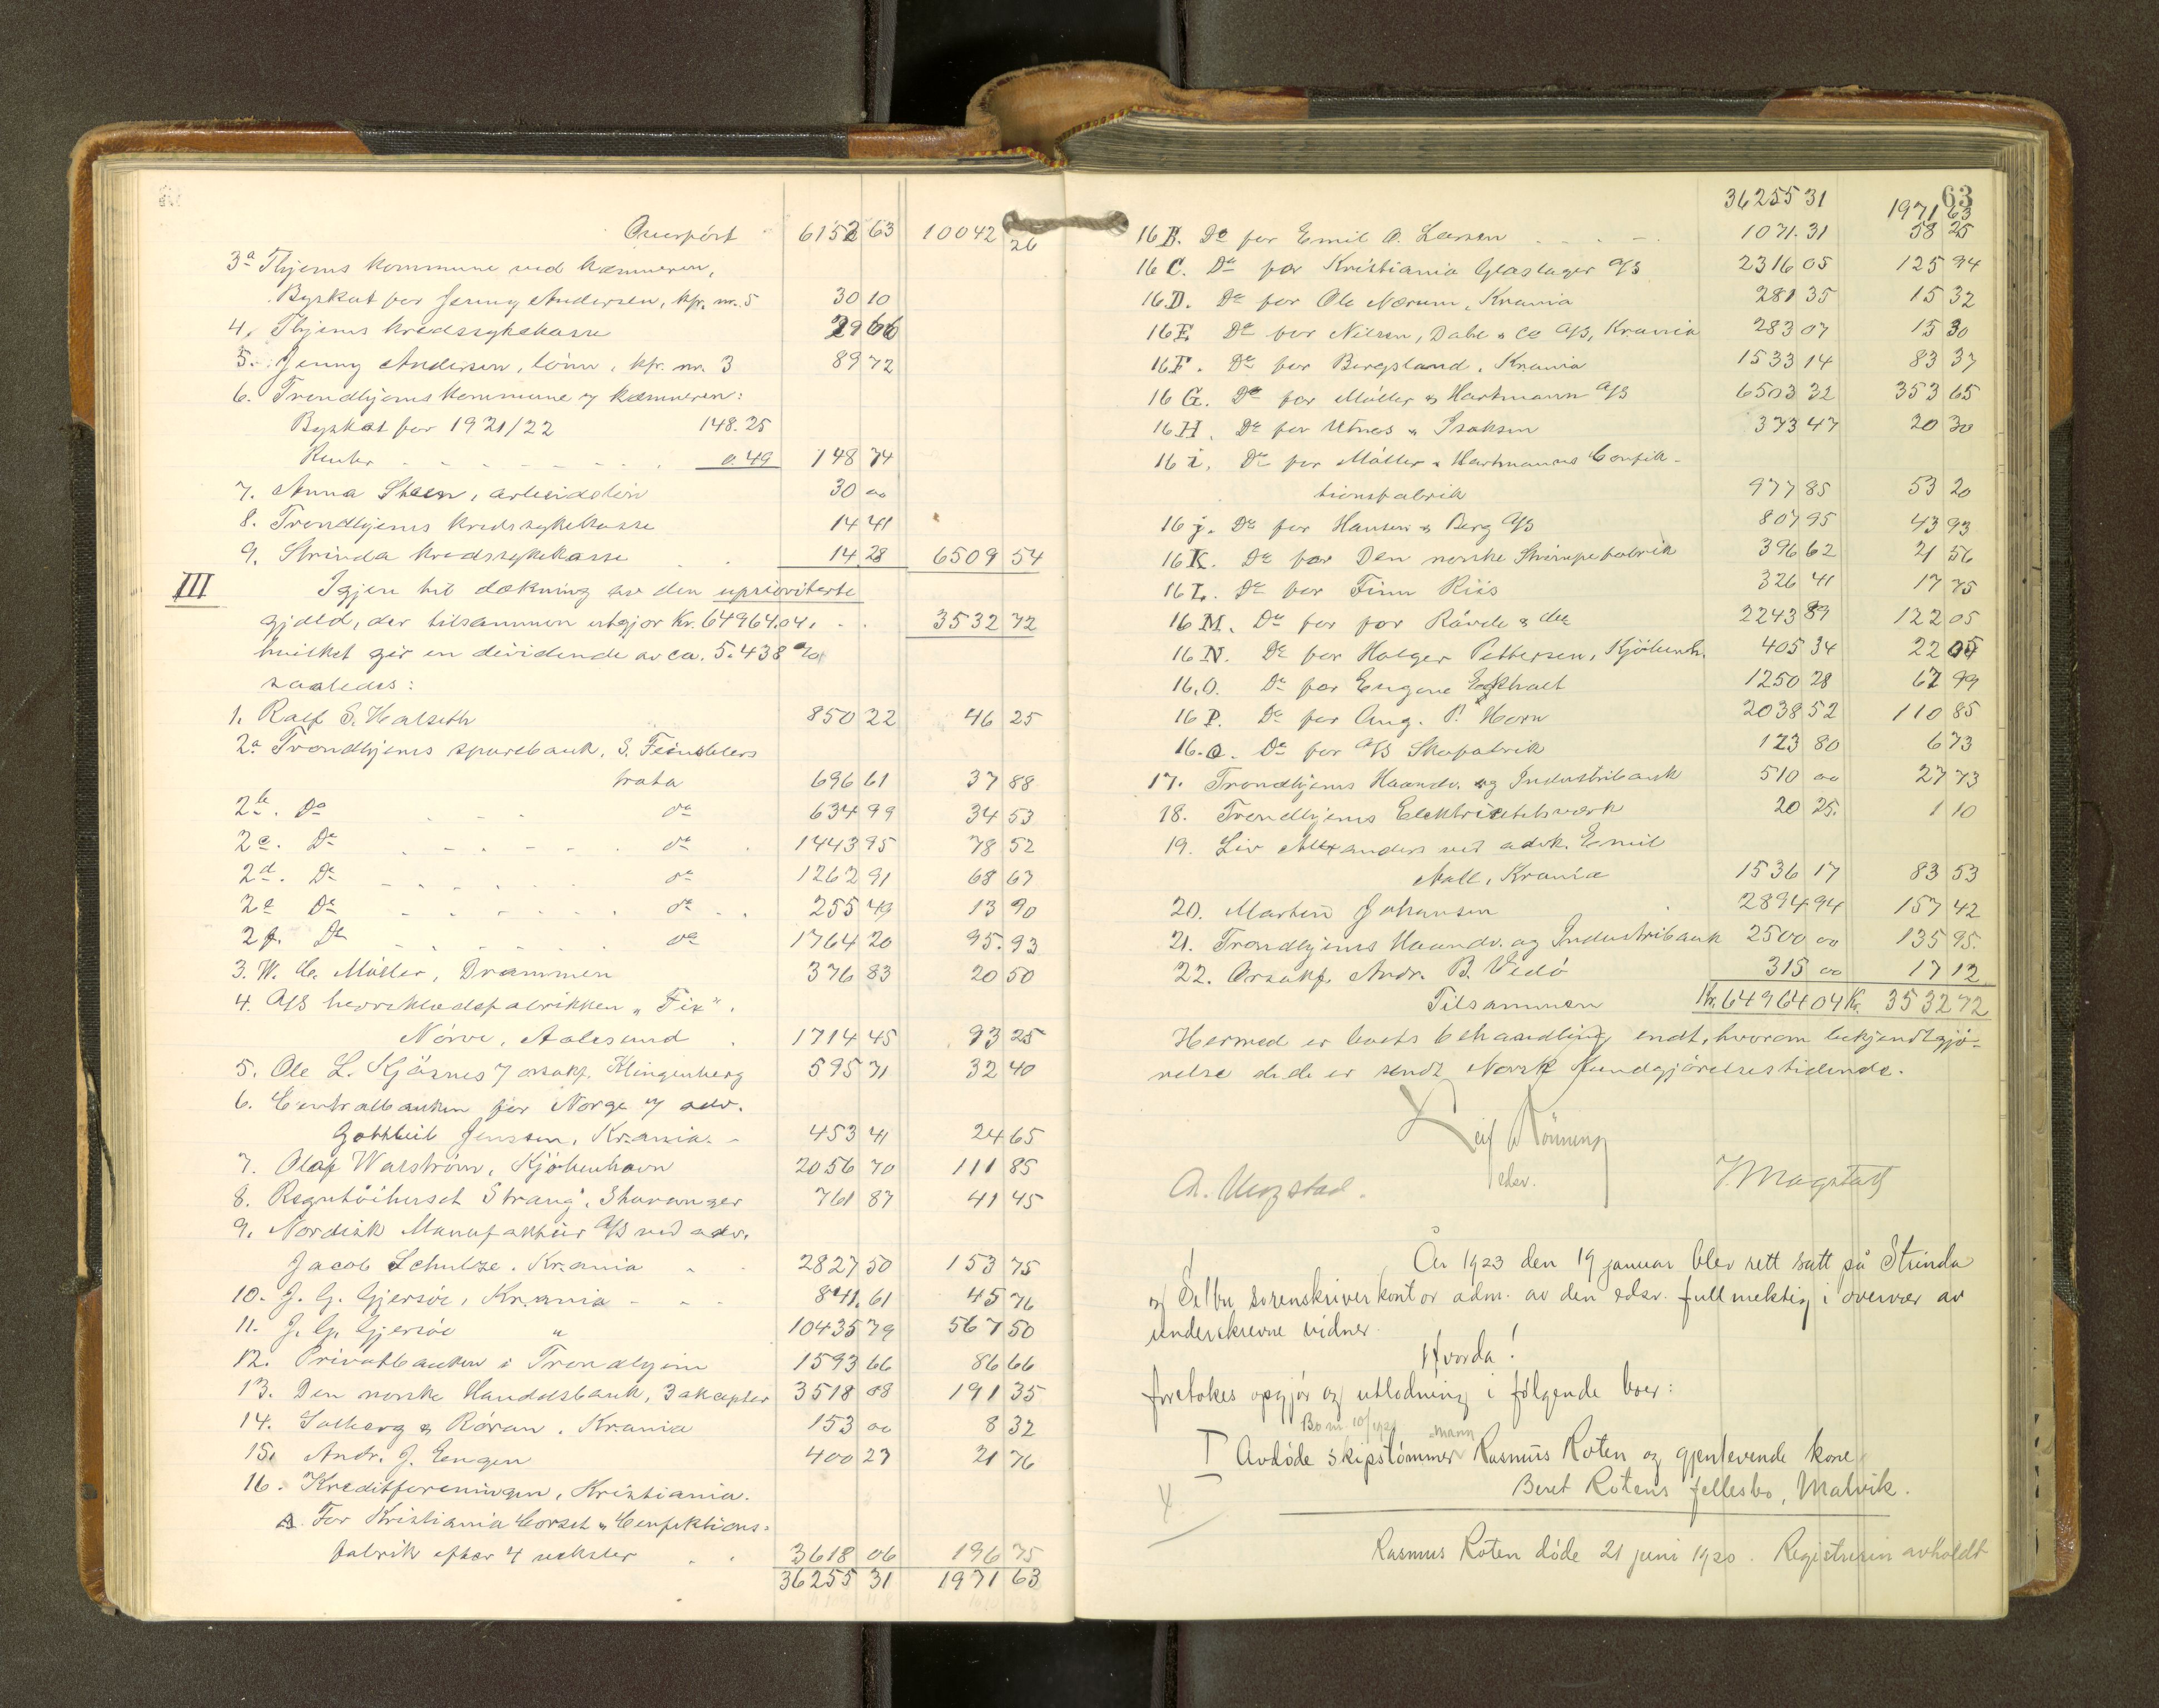 Overført 6152 63 10042 26
3a Thjems kommune ved kæmneren,
Byskat for Jenny Andersen, kfr. nr. 5 30 10
4. Thjems kredssykekasse 29 66
5. Jenny Andersen, lønn, kfr. nr. 3 89 72
6. Trondhjems kommune v/ kæmneren:
Byskat for 1921/22 148.25
Renter 0.49 148 74
7. Anna Steen, arbeidsløn 30 00
8. Trondhjems kredssykekasse 14 41
9. Strinda kredssykekasse 14 28 6509 54
III Igjen til dækning av den uprioriterte
gjæld, der tilsammen utgjør Kr. 64964.04. 3532 72
hvilket gir en dividende av ca. 5.438 %
saaledes:
1. Ralf S. Halseth 850 22 46 25
2a Trondhjems sparebank, S. Feinsilbers
trata 696 61 37 88
2b. Do do 634 99 34 53
2c. Do do 1443 95 78 52
2d. Do do 1262 91 68 67
2e Do do 255 49 13 90
2f. Do do 1764 20 95.93
3. W. C. Møller, Drammen 376 83 20 50
4. A/S herreklædefabrikken "Fix",
Nørve, Aalesund 1714 45 93 25
5. Ole L. Kjøsnes v/ orsakf. Klingenberg 595 71 32 40
6. Centralbanken for Norge v/ adv.
Gottheil Jenssen, Kr.ania 453 41 24 65
7. Olaf Warstrøm, Kjøbenhavn 2056 70 111 85
8. Regntøihuset Strang, Stavanger 761 87 41 45
9. Nordisk Manufaktur A/S ved adv.
Jacob Schulze. Kr.ania 2827 50 153 75
10. J. G. Gjersøe, Kr.ania 841.61 45 76
11. J. G. Gjersøe " 10435 79 567 50
12. Privatbanken i Trondhjem 1593 66 86 66
13. Den norske Handelsbank, 3 akcepter 3518 08 191 35
14. Solberg & Røran. Kr.ania 153 00 8 32
15. Andr. J. Engen 400 23 21 76
16. Kreditforeningen, Kristiania.
A. For Kristiania Corset & Confektions-
fabrik efter 4 veksler 3618 06 196 75
36255 31 1971 63
63
36255 31 1971 63
16 B. Do for Emil O. Larsen 1071.31 58 25
16 C. Do for Kristiania Glaslager A/S 2316 05 125 94
16 D. Do for Ole Nærum, Kr.ania 281 35 15 32
16 E. Do for Nilsen, Dahl & Co A/S, Kr.ania 283 07 15 30
16 F. Do for Bergsland, Kr.ania 1533 14 83 37
16 G. Do for Møller & Hartmann A/S 6503 32 353 65
16 H. Do for Utnes & Isaksen 373 47 20 30
16 i. Do for Møller & Hartmanns Confek-
tionsfabrik 977 85 53 20
16 j. Do for Hansen & Berg A/S 807 95 43 93
16 K. Do for Den norske Strømpefabrik 396 62 21 56
16 L. Do for Finn Riis 326 41 17 75
16 M. Do for for Råvde & 2243 89 122 05
16 N. Do for Holger Pettersen, Kjøbenh. 405 34 22 05
16.O. Do for Eugene Egkhalt 1250 28 67 99
16 P. Do for Aug. P. Horn 2038 52 110 85
16.Q. Do for A/S Skofabrik 123 80 6 73
17. Trondhjems Haandv. og Industribank 510 00 27 73
18. Trondhjems Elektricitetsværk 20 25. 1 10
19. Liv Alexanders ved advk. Emil
Mall, Kr.ania 1536 17 83 53
20. Martin Johansen 2894 94 157 42
21. Trondhjems Haandv. og Industribank 2500 00 135 95.
22. Orsakf. Andr. B. Vedø 315 00 17 12
Tilsammen Kr. 64964 04 Kr. 3532 72
Hermed er boets behandling endt, hvorom bekjendtgjø-
relse d.d. er sendt Norsk Kundgjørelsestidende.
Leif Rønning
edsv.
A. Mogstad. J. Mogstad
År 1923 den 19 januar blev rett satt på Strinda
og Selbu sorenskriverkontor adm. av den edsv. fullmektig i overvær av
underskrevne vidner.
Hvorda!
foretokes opgjør og utlodning i følgende boer:
Bo nr. 10/1921 mann
I Avdøde skipstømmer Rasmus Roten og gjenlevende kone
Beret Rotens fellesbo, Malvik.
Rasmus Roten døde 21 juni 1920. Registrering avholdt